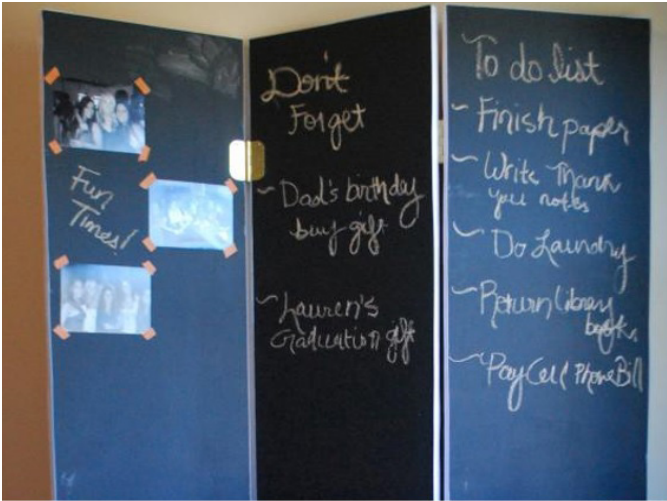 Fun
Times!
Don't
Forget
~ Dad's birthday
buy gift
~ Lauren's
Graduation gift
To do list
~ Finish paper
~ Write Thank
you notes
~ Do Laundry
~ Return library
books
~ Pay Cell Phone Bill